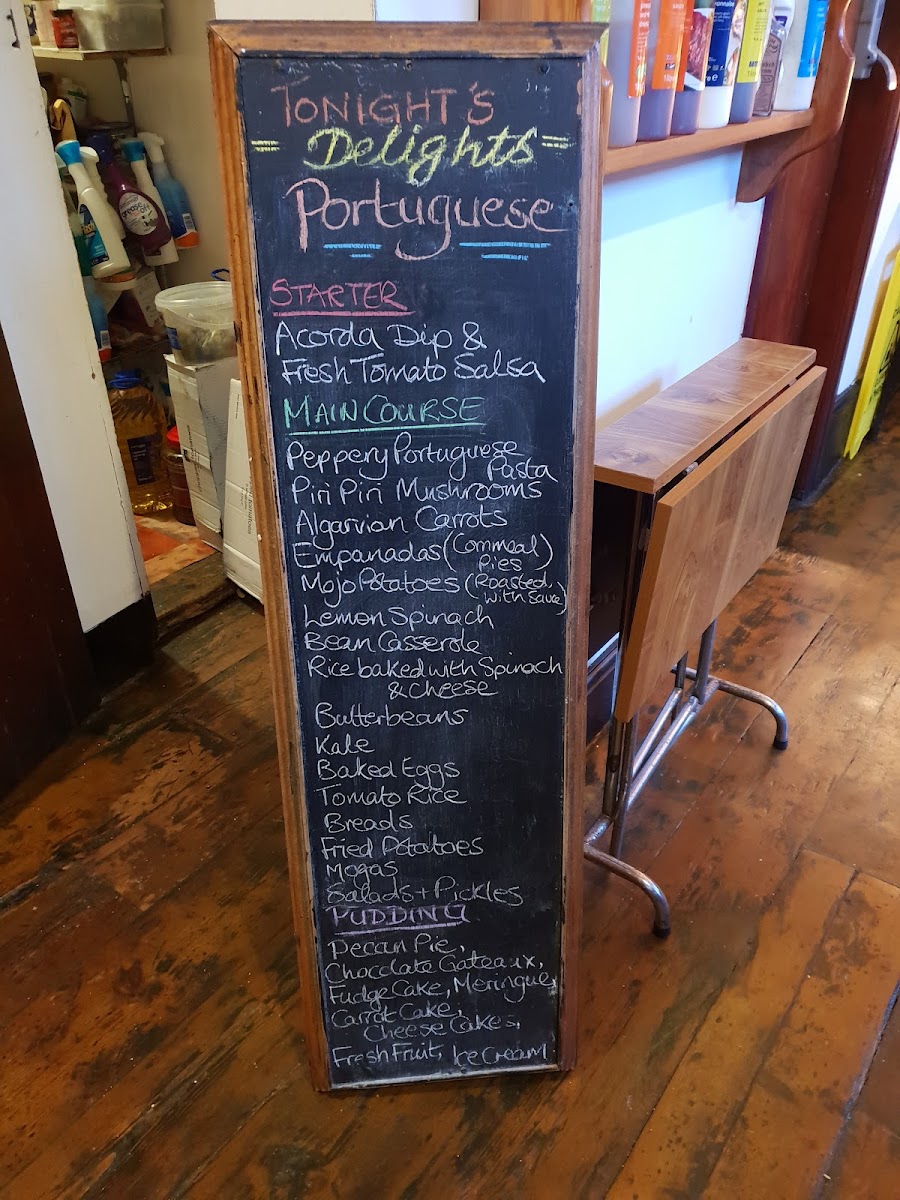 TONIGHT'S
= Delights =
Portuguese
STARTER
Acorda Dip &
Fresh Tomato Salsa
MAIN COURSE
Peppery Portuguese
Pasta
Piri Piri Mushrooms
Algarvian Carrots
Empanadas (Cornmeal)
Pies
Mojo Potatoes (Roasted
with Sauce)
Lemon Spinach
Bean Casserole
Rice baked with Spinach
& Cheese
Butterbeans
Kale
Baked Eggs
Tomato Rice
Breads
Fried Potatoes
Megas
Salads + Pickles
PUDDING
Pecan Pie,
Chocolate Gateaux,
Fudge Cake, Meringue,
Carrot Cake,
Cheese Cakes,
Fresh Fruit, Ice Cream